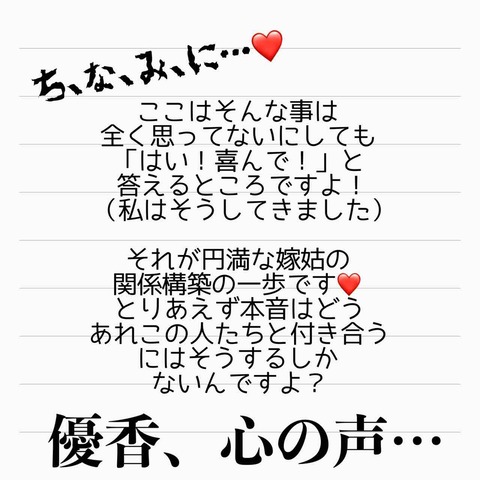 ち、な、み、に…❤️
ここはそんな事は
全く思ってないにしても
「はい！喜んで！」と
答えるところですよ！
（私はそうしてきました）
それが円満な嫁姑の
関係構築の一歩です❤️
とりあえず本音はどう
あれこの人たちと付き合う
にはそうするしか
ないんですよ？
優香、心の声…